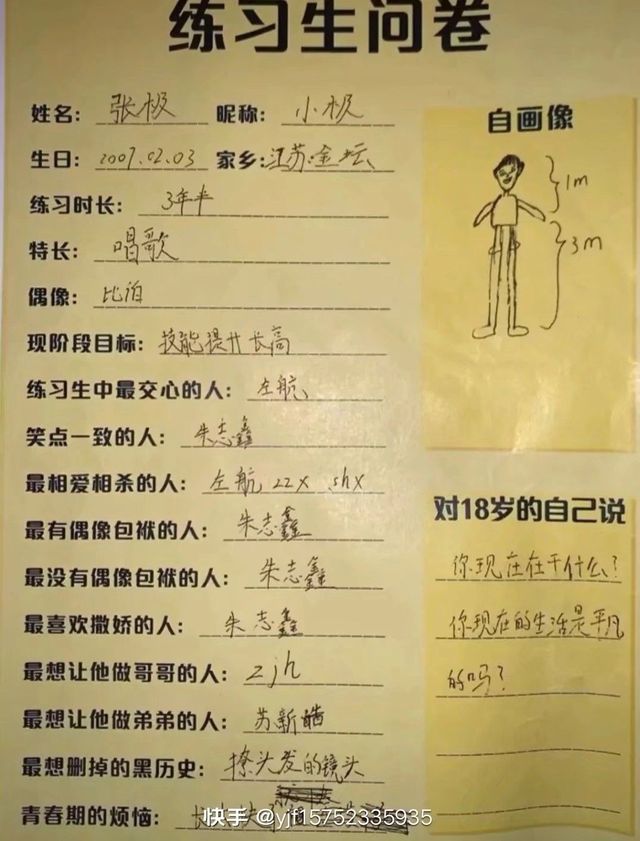 练习生问卷
姓名：张极 昵称：小极
生日：2007.02.03 家乡：江苏金坛
练习时长：3年半
特长：唱歌
偶像：比泊
现阶段目标：技能提升 长高
练习生中最交心的人：左航
笑点一致的人：朱志鑫
最相爱相杀的人：左航 zzx shx
最有偶像包袱的人：朱志鑫
最没有偶像包袱的人：朱志鑫
最喜欢撒娇的人：朱志鑫
最想让他做哥哥的人：zjh
最想让他做弟弟的人：苏新皓
最想删掉的黑历史：撩头发的镜头
青春期的烦恼：
自画像
1m
3m
对18岁的自己说
你现在在干什么？
你现在的生活是平凡
的吗？
快手 @yjf15752335935